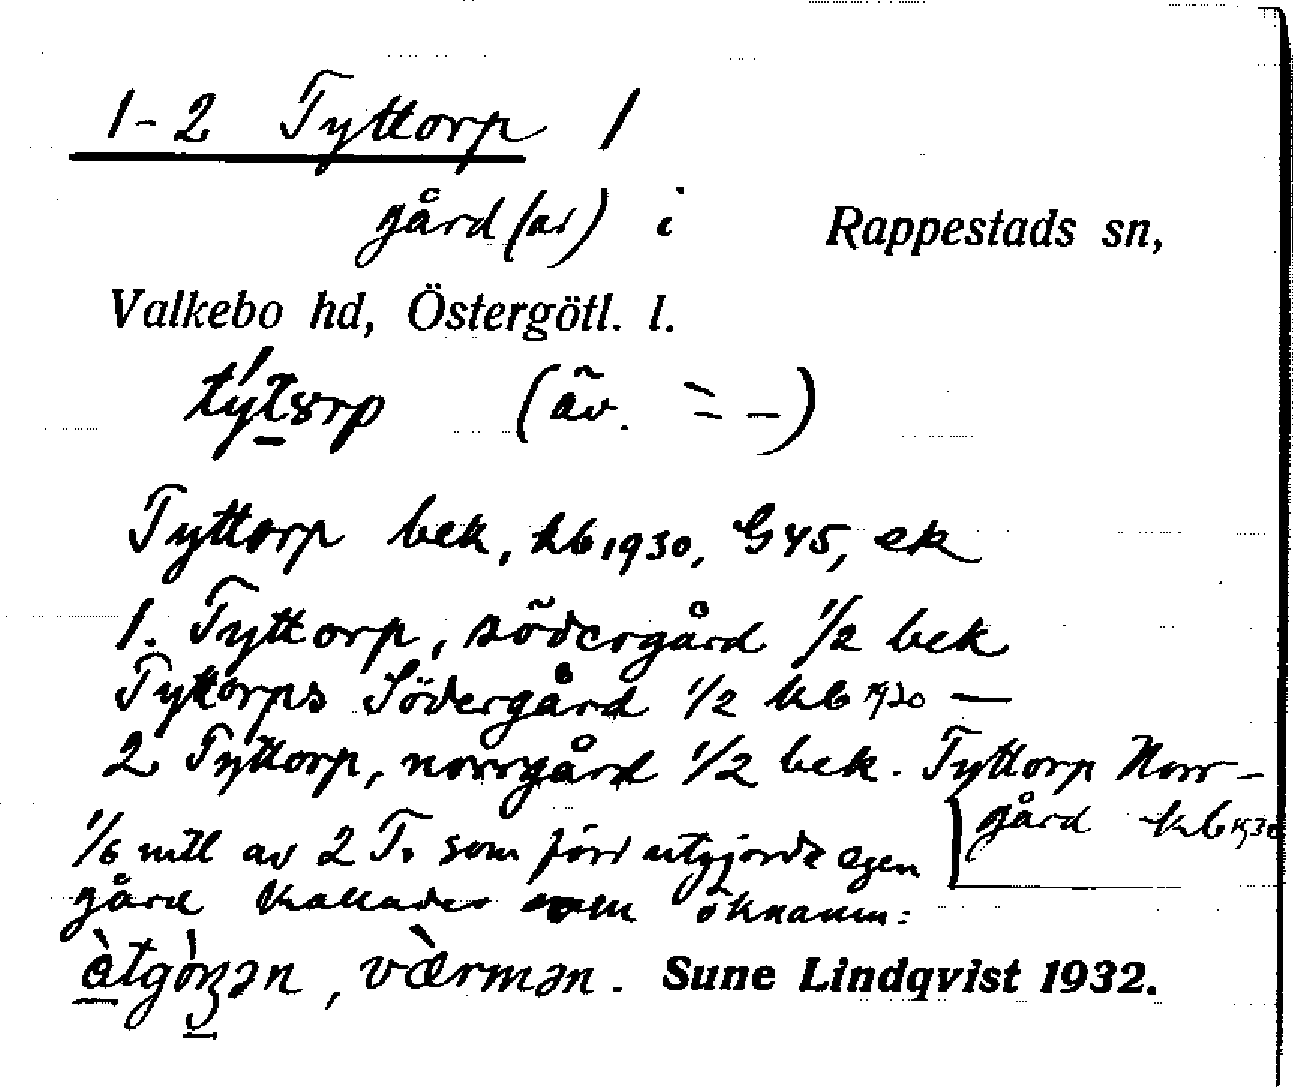 1-2 Tyttorp 1
gård(ar) i Rappestads sn,
Valkebo hd, Östergötl. l.
(äv. = –)
Tyttorp bek, kb 1930, G 45, ek
1. Tyttorp, södergård 1/2 bek
Tyttorps Södergård 1/2 kb 1930 —
2 Tyttorp, norrgård 1/2 bek. Tyttorp Norr-
gård kb 1930
1/6 mtl av 2 T. som förr utgjorde egen
gård kallades som öknamn:
Sune Lindqvist 1932.